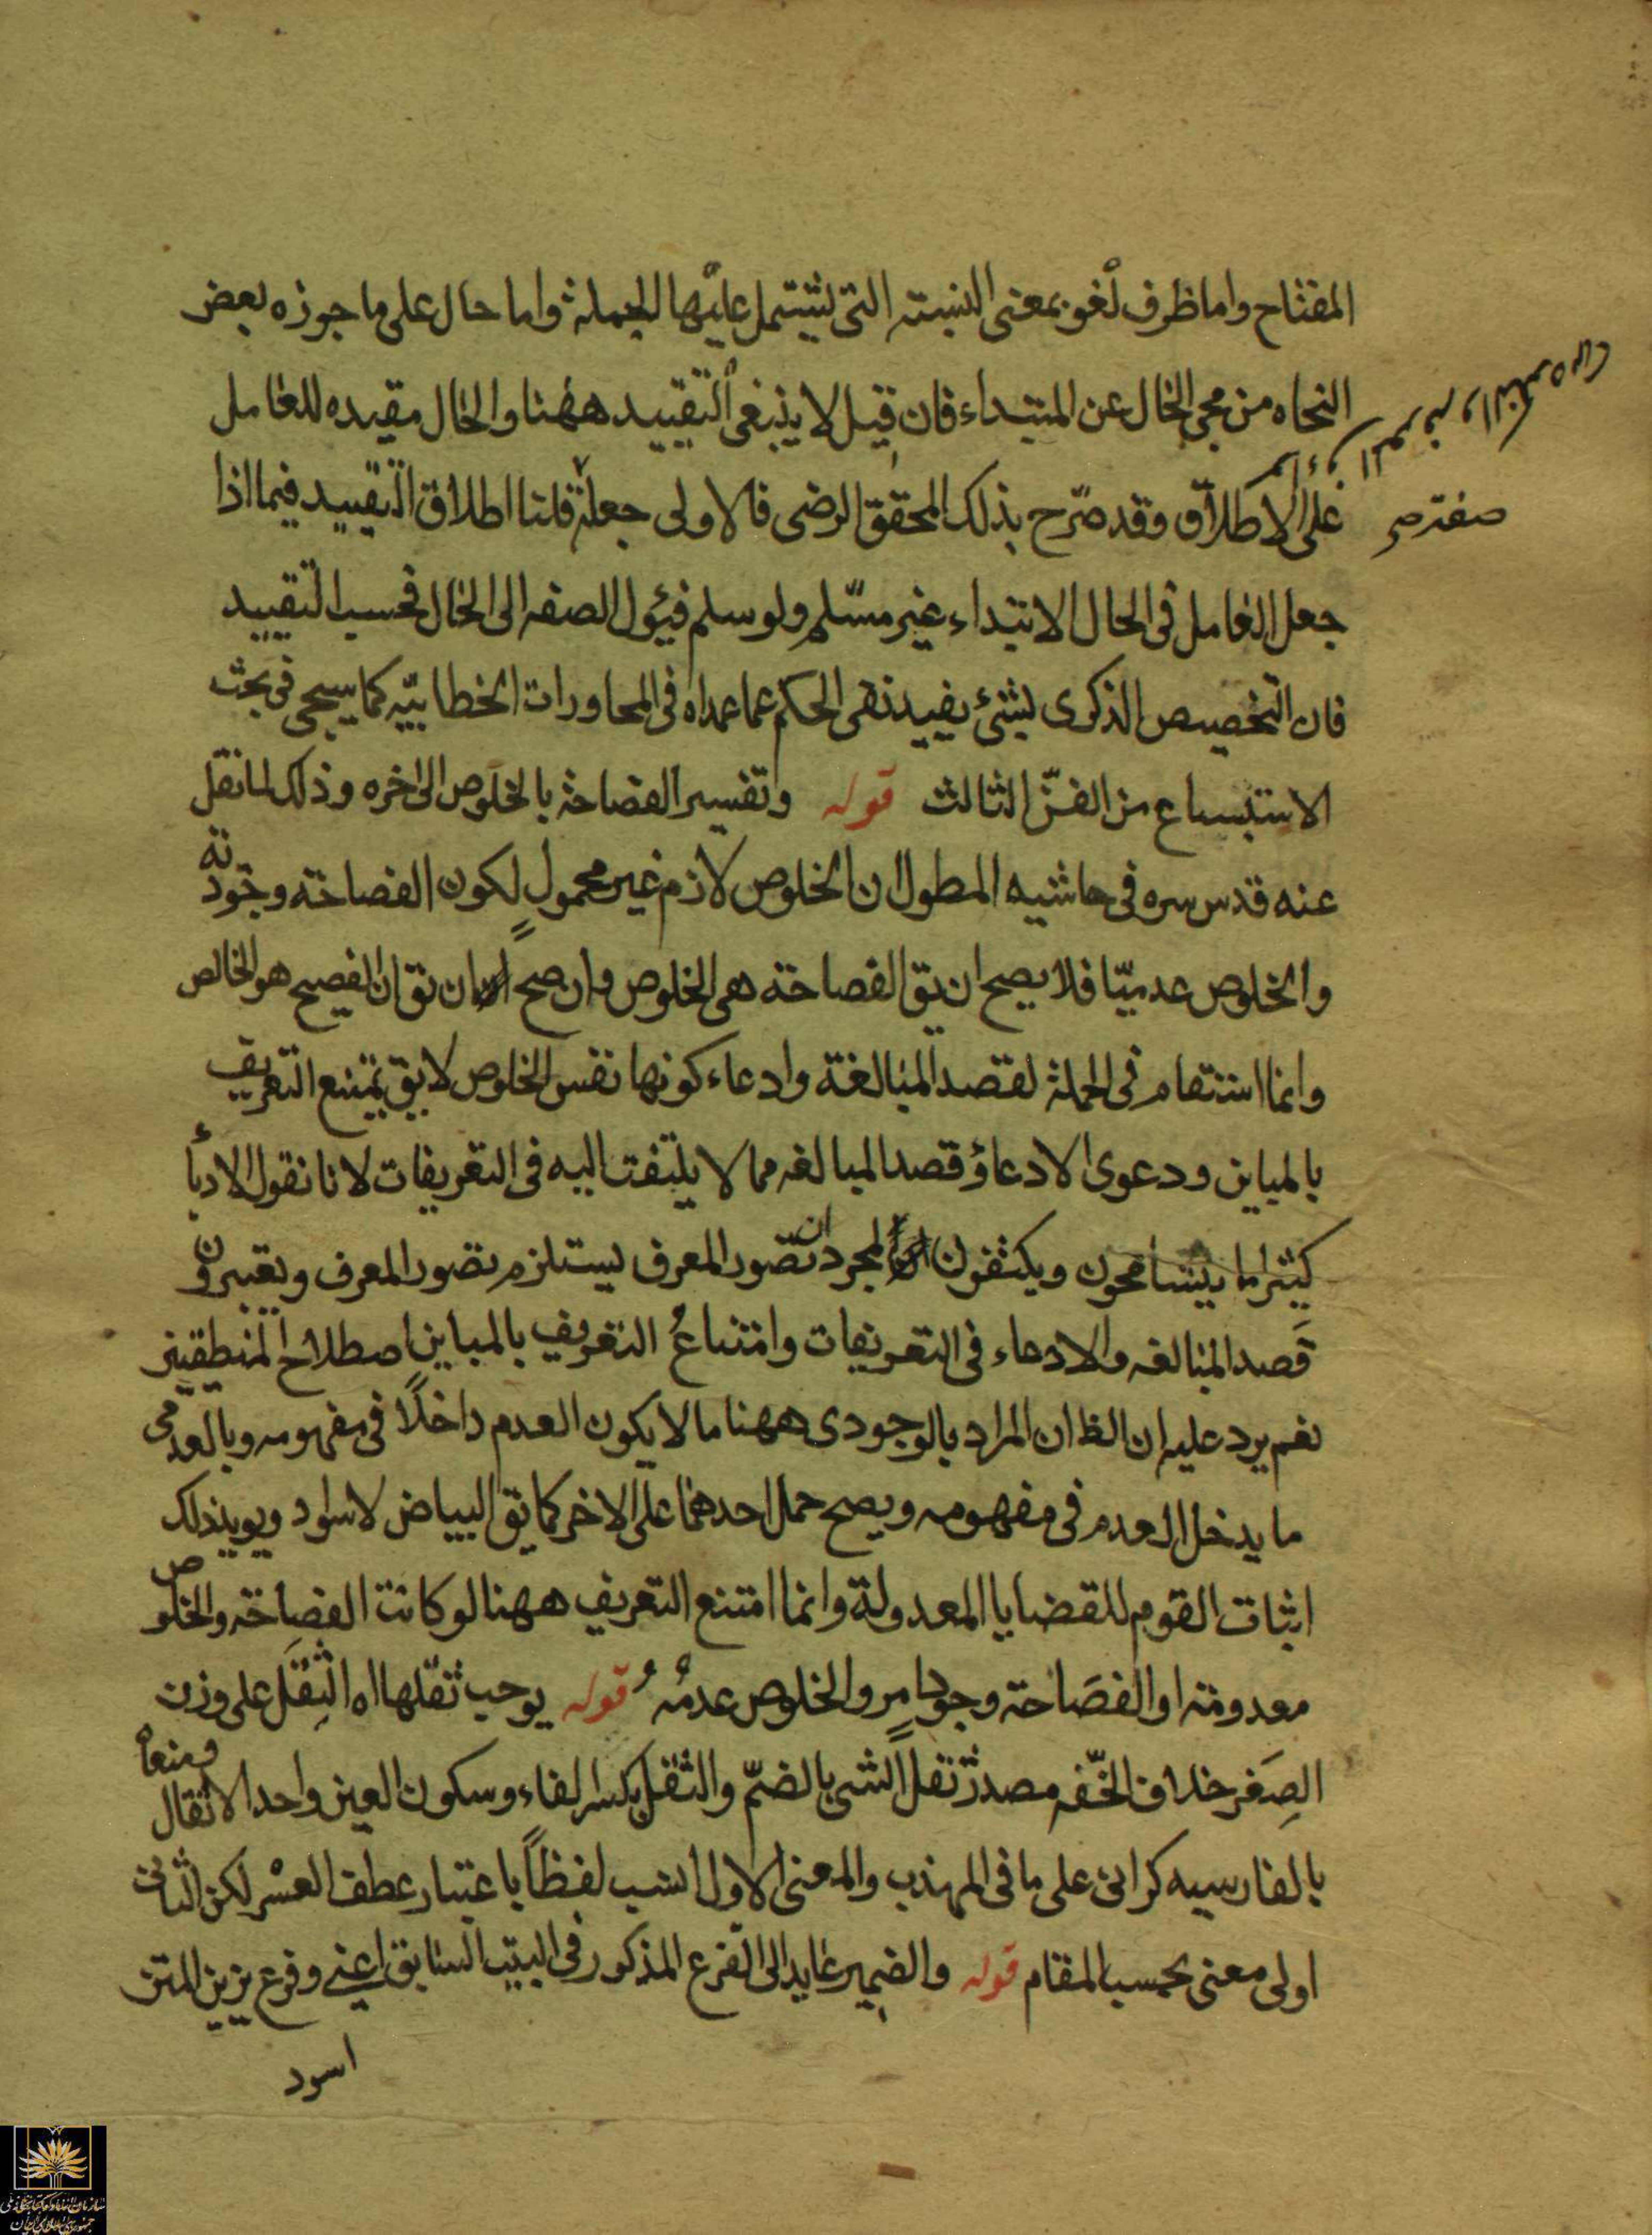 المفتاح واما ظرف لغو بمعنى النسبته التى تشتمل عليها الجملة واما حال على ما جوزه بعض
النحاه من مجى الحال عن المبتداء فان قيل لا ينبغى التقييد ههنا والحال مقيده للعامل
على الاطلاق وقد صرّح بذلك المحقق الرضى فالاولى جعله قلنا اطلاق التقييد فيما اذا
صفة صح
جعل العامل فى الحال الابتداء غير مسلّم ولو سلم فيؤل الصفه الى الحال فحسب التقييد
فان التخصيص الذكرى لشئ يفيد نفى الحكم عما عداه فى المحاورات الخطابيّه كما سيجى فى بحث
الاستتباع من الفنّ الثالث قوله وتفسير الفصاحة بالخلوص الى اخره وذلك لما نقل
عنه قدس سره فى حاشيه المطول ان الخلوص لازم غير محمول لكون الفصاحة وجودية
والخلوص عدميّا فلا يصح ان يق الفصاحة هى الخلوص وان صح ان يق ان الفصيح هو الخالص
وانما استقام فى الجملة لقصد المبالغة وادعاء كونها نفس الخلوص لا يق يمتنع التعريف
بالمباين ودعوى الادعاؤ قصد المبالغه مما لا يلتفت اليه فى التعريفات لانا نقول الادبأ
كثيرا ما يتسامحون ويكتفون لمجرد ان تصور المعرف يستلزم تصور المعرف ويعتبرون
قصد المبالغه والادعاء فى التعريفات وامتناعُ التعريف بالمباين اصطلاح المنطقيين
نعم يرد عليه ان الظ ان المراد بالوجودى ههنا ما لا يكون العدم داخلاً فى مفهومه وبالعدمى
ما يدخل العدم فى مفهومه ويصح حمل احدهما على الاخر كما يق البياض لاسواد ويويد ذلك
اثبات القوم للقضايا المعدولة وانما امتنع التعريف ههنا لو كانت الفصاحة والخلوص
معدومة او الفصَاحة وجود امرٍ والخلوص عدمُه قوله يوجب ثقلها اه الثِقَل على وزن
الصِغَر خلاف الخّفه مصدر ثقل الشى بالضمّ والثقل بكسر الفاء وسكون العين واحد الاثقال ومعناه
بالفارسيه كرانى على ما فى المهذب والمعنى الاول انسب لفظاً باعتبار عطف العسْر لكن الثانى
اولى معنى بحسب المقام قوله والضمير عايد الى الفرع المذكور فى البيت السابق اعنى وفرع يزين المتن
اسود